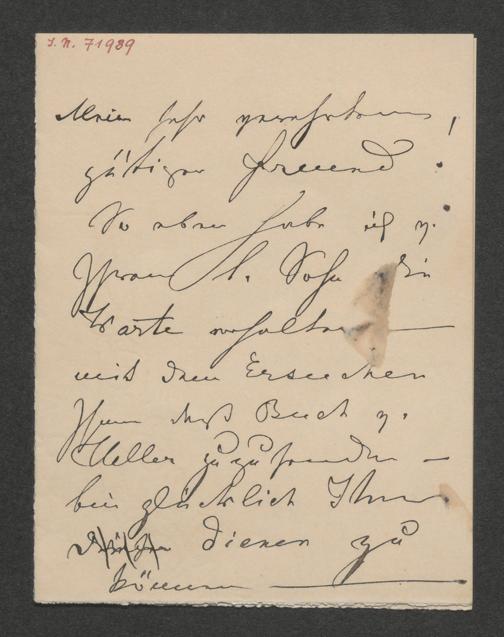 I. N. 71989
Mein sehr verehrter,
gütiger Freund!
So eben habe ich v.
Ihrem l. Sohn die
Karte erhalten —
mit dem Ersuchen
Ihnen das Buch v.
Heller zuzusenden —
bin glücklich Ihnen
dienen zu
können —